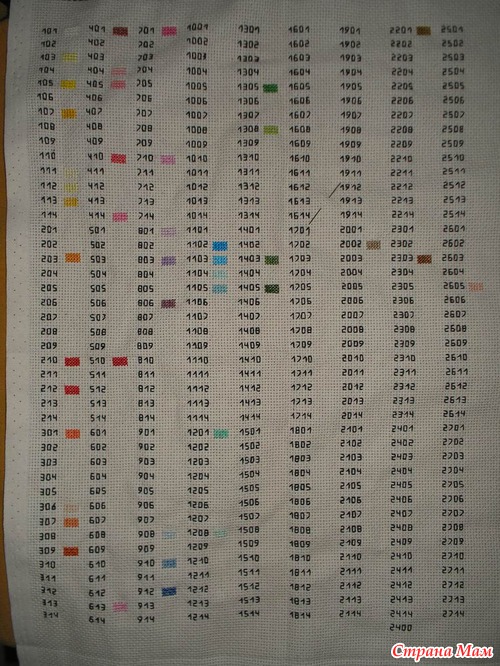 101 401 701 1001 1301 1601 1901 2201 2501
102 402 702 1002 1302 1602 1902 2202 2502
103 403 703 1003 1303 1603 1903 2203 2503
104 404 704 1004 1304 1604 1904 2204 2504
105 405 705 1005 1305 1605 1905 2205 2505
106 406 706 1006 1306 1606 1906 2206 2506
107 407 707 1007 1307 1607 1907 2207 2507
108 408 708 1008 1308 1608 1908 2208 2508
109 409 709 1009 1309 1609 1909 2209 2509
110 410 710 1010 1310 1610 1910 2210 2510
111 411 711 1011 1311 1611 1911 2211 2511
112 412 712 1012 1312 1612 1912 2212 2512
113 413 713 1013 1313 1613 1913 2213 2513
114 414 714 1014 1314 1614 1914 2214 2514
201 501 801 1101 1401 1701 2001 2301 2601
202 502 802 1102 1402 1702 2002 2302 2602
203 503 803 1103 1403 1703 2003 2303 2603
204 504 804 1104 1404 1704 2004 2304 2604
205 505 805 1105 1405 1705 2005 2305 2605
206 506 806 1106 1406 1706 2006 2306 2606
207 507 807 1107 1407 1707 2007 2307 2607
208 508 808 1108 1408 1708 2008 2308 2608
209 509 809 1109 1409 1709 2009 2309 2609
210 510 810 1110 1410 1710 2010 2310 2610
211 511 811 1111 1411 1711 2011 2311 2611
212 512 812 1112 1412 1712 2012 2312 2612
213 513 813 1113 1413 1713 2013 2313 2613
214 514 814 1114 1414 1714 2014 2314 2614
301 601 901 1201 1501 1801 2101 2401 2701
302 602 902 1202 1502 1802 2102 2402 2702
303 603 903 1203 1503 1803 2103 2403 2703
304 604 904 1204 1504 1804 2104 2404 2704
305 605 905 1205 1505 1805 2105 2405 2705
306 606 906 1206 1506 1806 2106 2406 2706
307 607 907 1207 1507 1807 2107 2407 2707
308 608 908 1208 1508 1808 2108 2408 2708
309 609 909 1209 1509 1809 2109 2409 2709
310 610 910 1210 1510 1810 2110 2410 2710
311 611 911 1211 1511 1811 2111 2411 2711
312 612 912 1212 1512 1812 2112 2412 2712
313 613 913 1213 1513 1813 2113 2413 2713
314 614 914 1214 1514 1814 2114 2414 2714
2400
Страна Мам